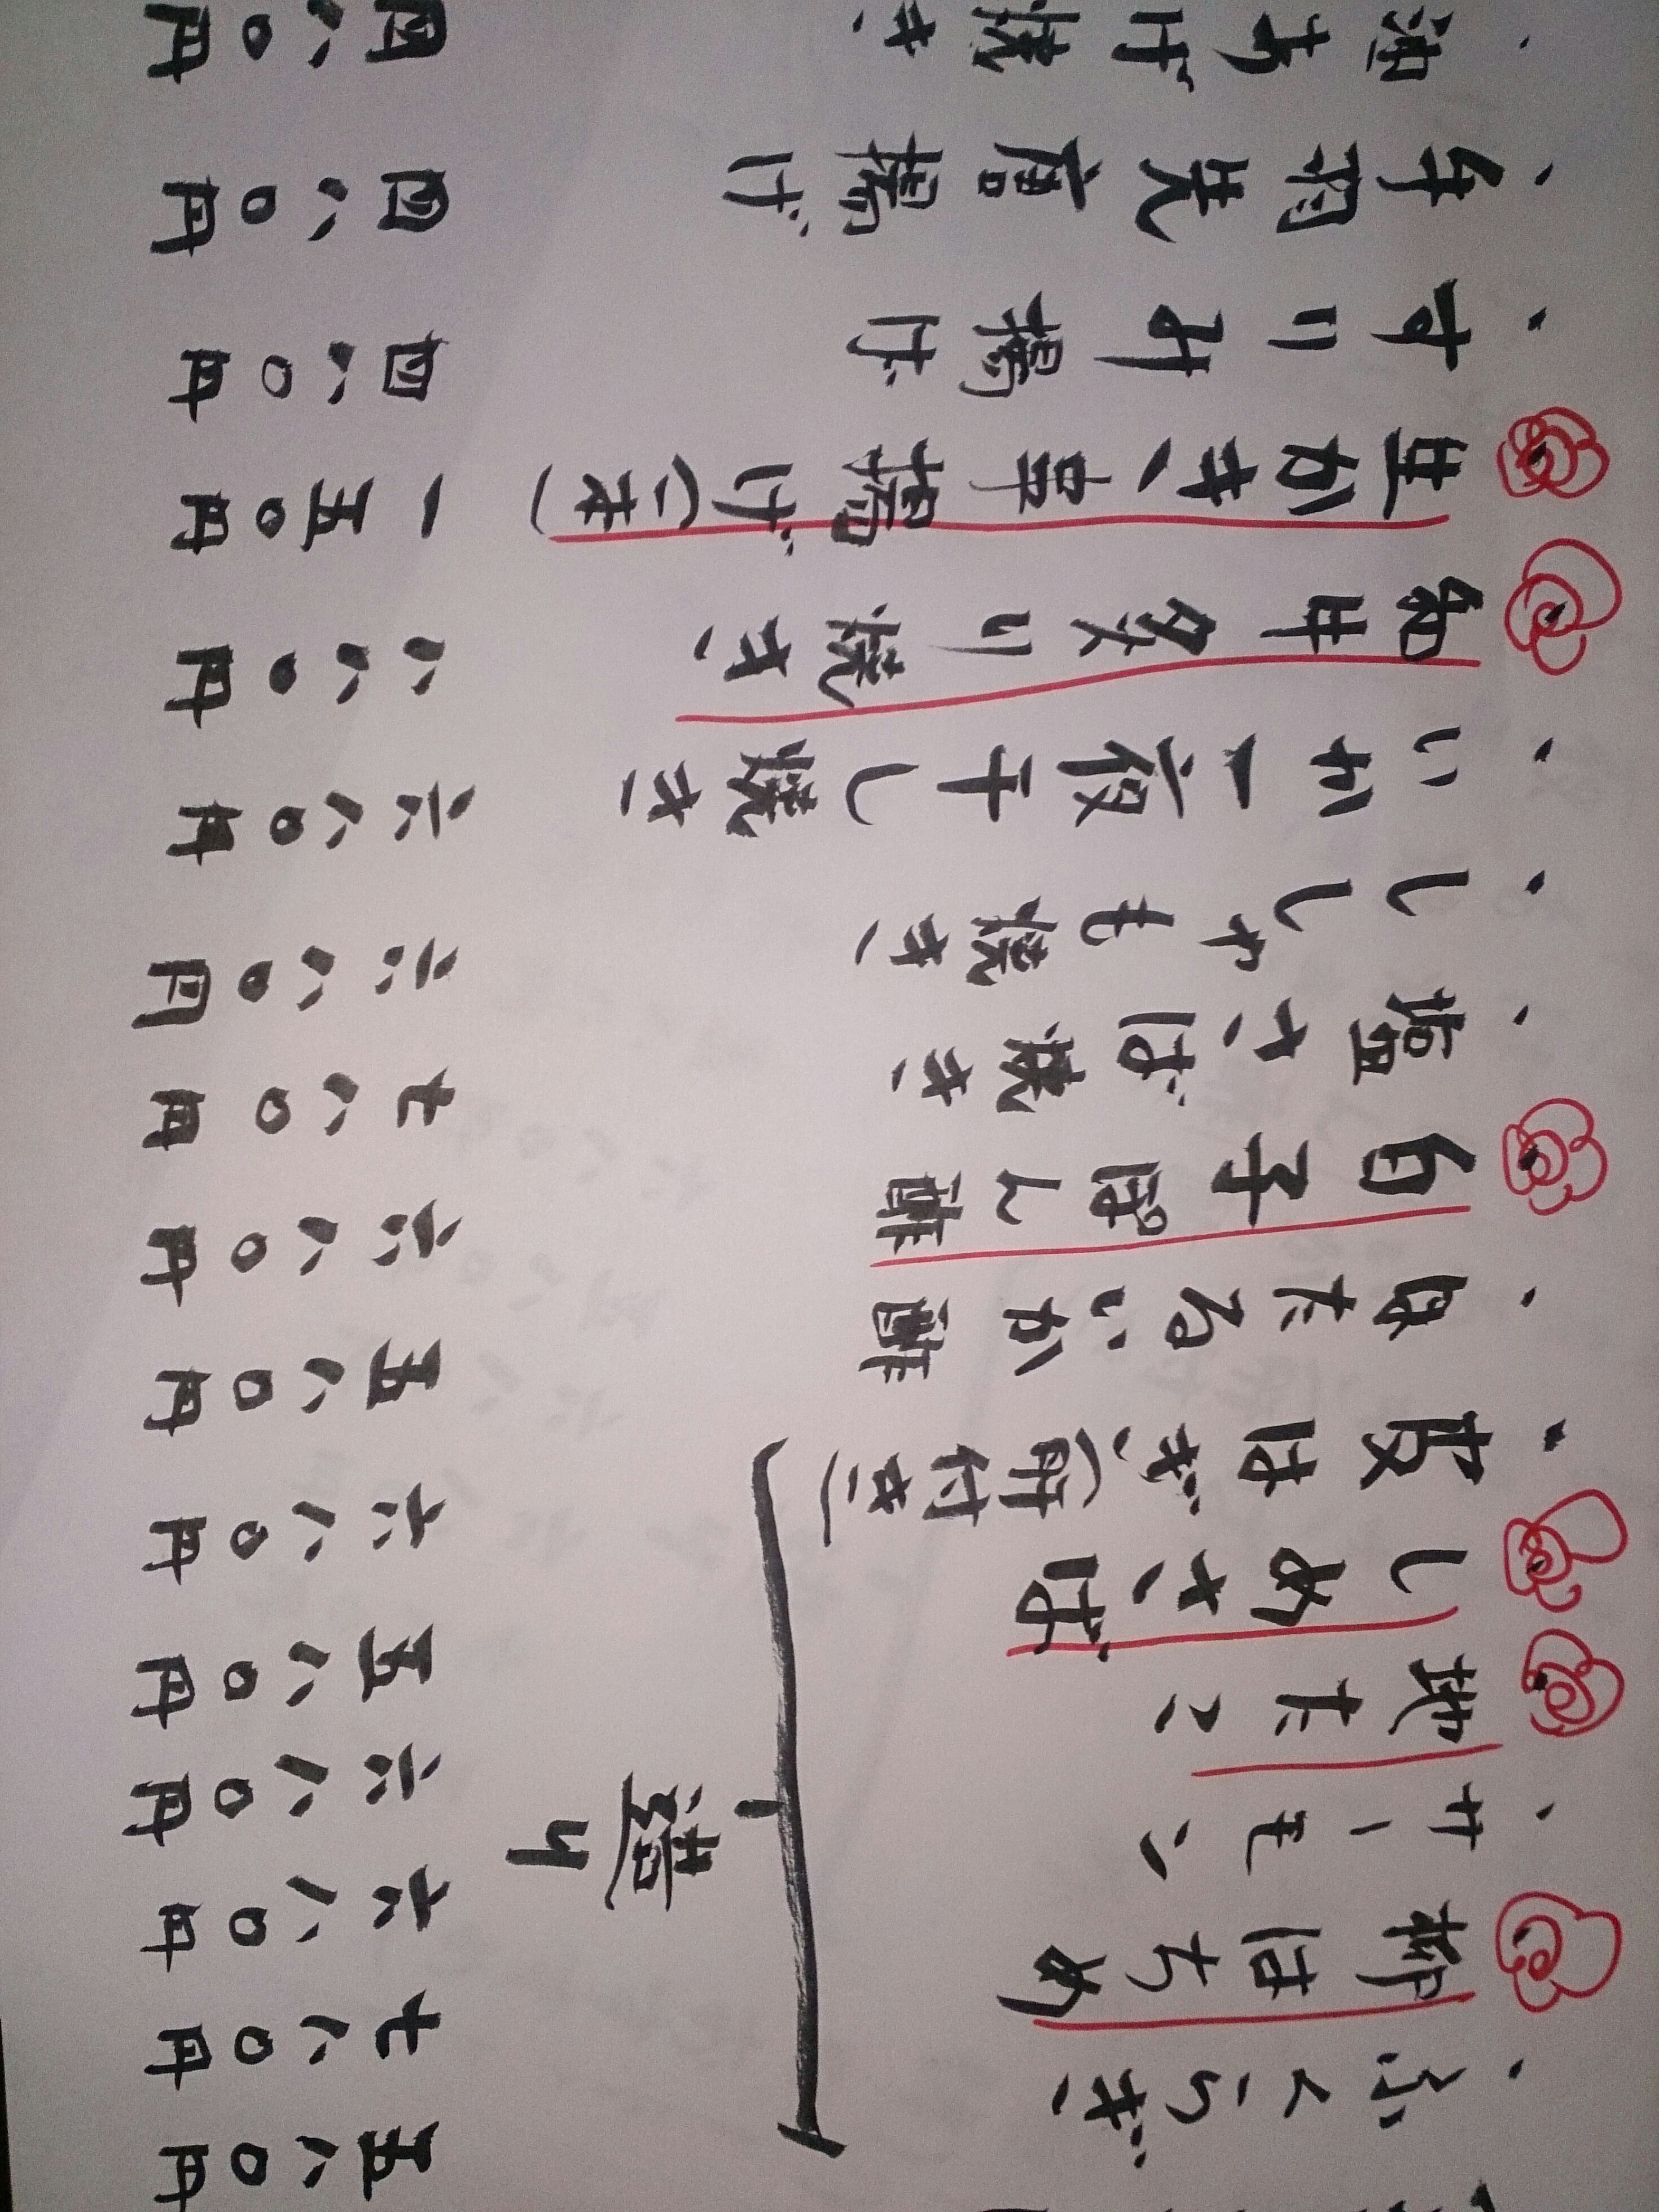 ・ふくらぎ 五八〇円
柳はちめ 七八〇円
・サーモン 六八〇円
地たこ 六八〇円
しめさば 五八〇円
・皮はぎ(肝付き) 六八〇円
造り
・ほたるいか酢 五八〇円
白子ぽん酢 六八〇円
・塩さば焼き 七八〇円
・ししゃも焼き 六八〇円
・いか一夜干し焼き 六八〇円
和牛炙り焼き 八八〇円
生かき串揚げ(一本) 一五〇円
・すりみ揚げ 四八〇円
・手羽先唐揚げ 四八〇円
・油あげ焼き 四八〇円